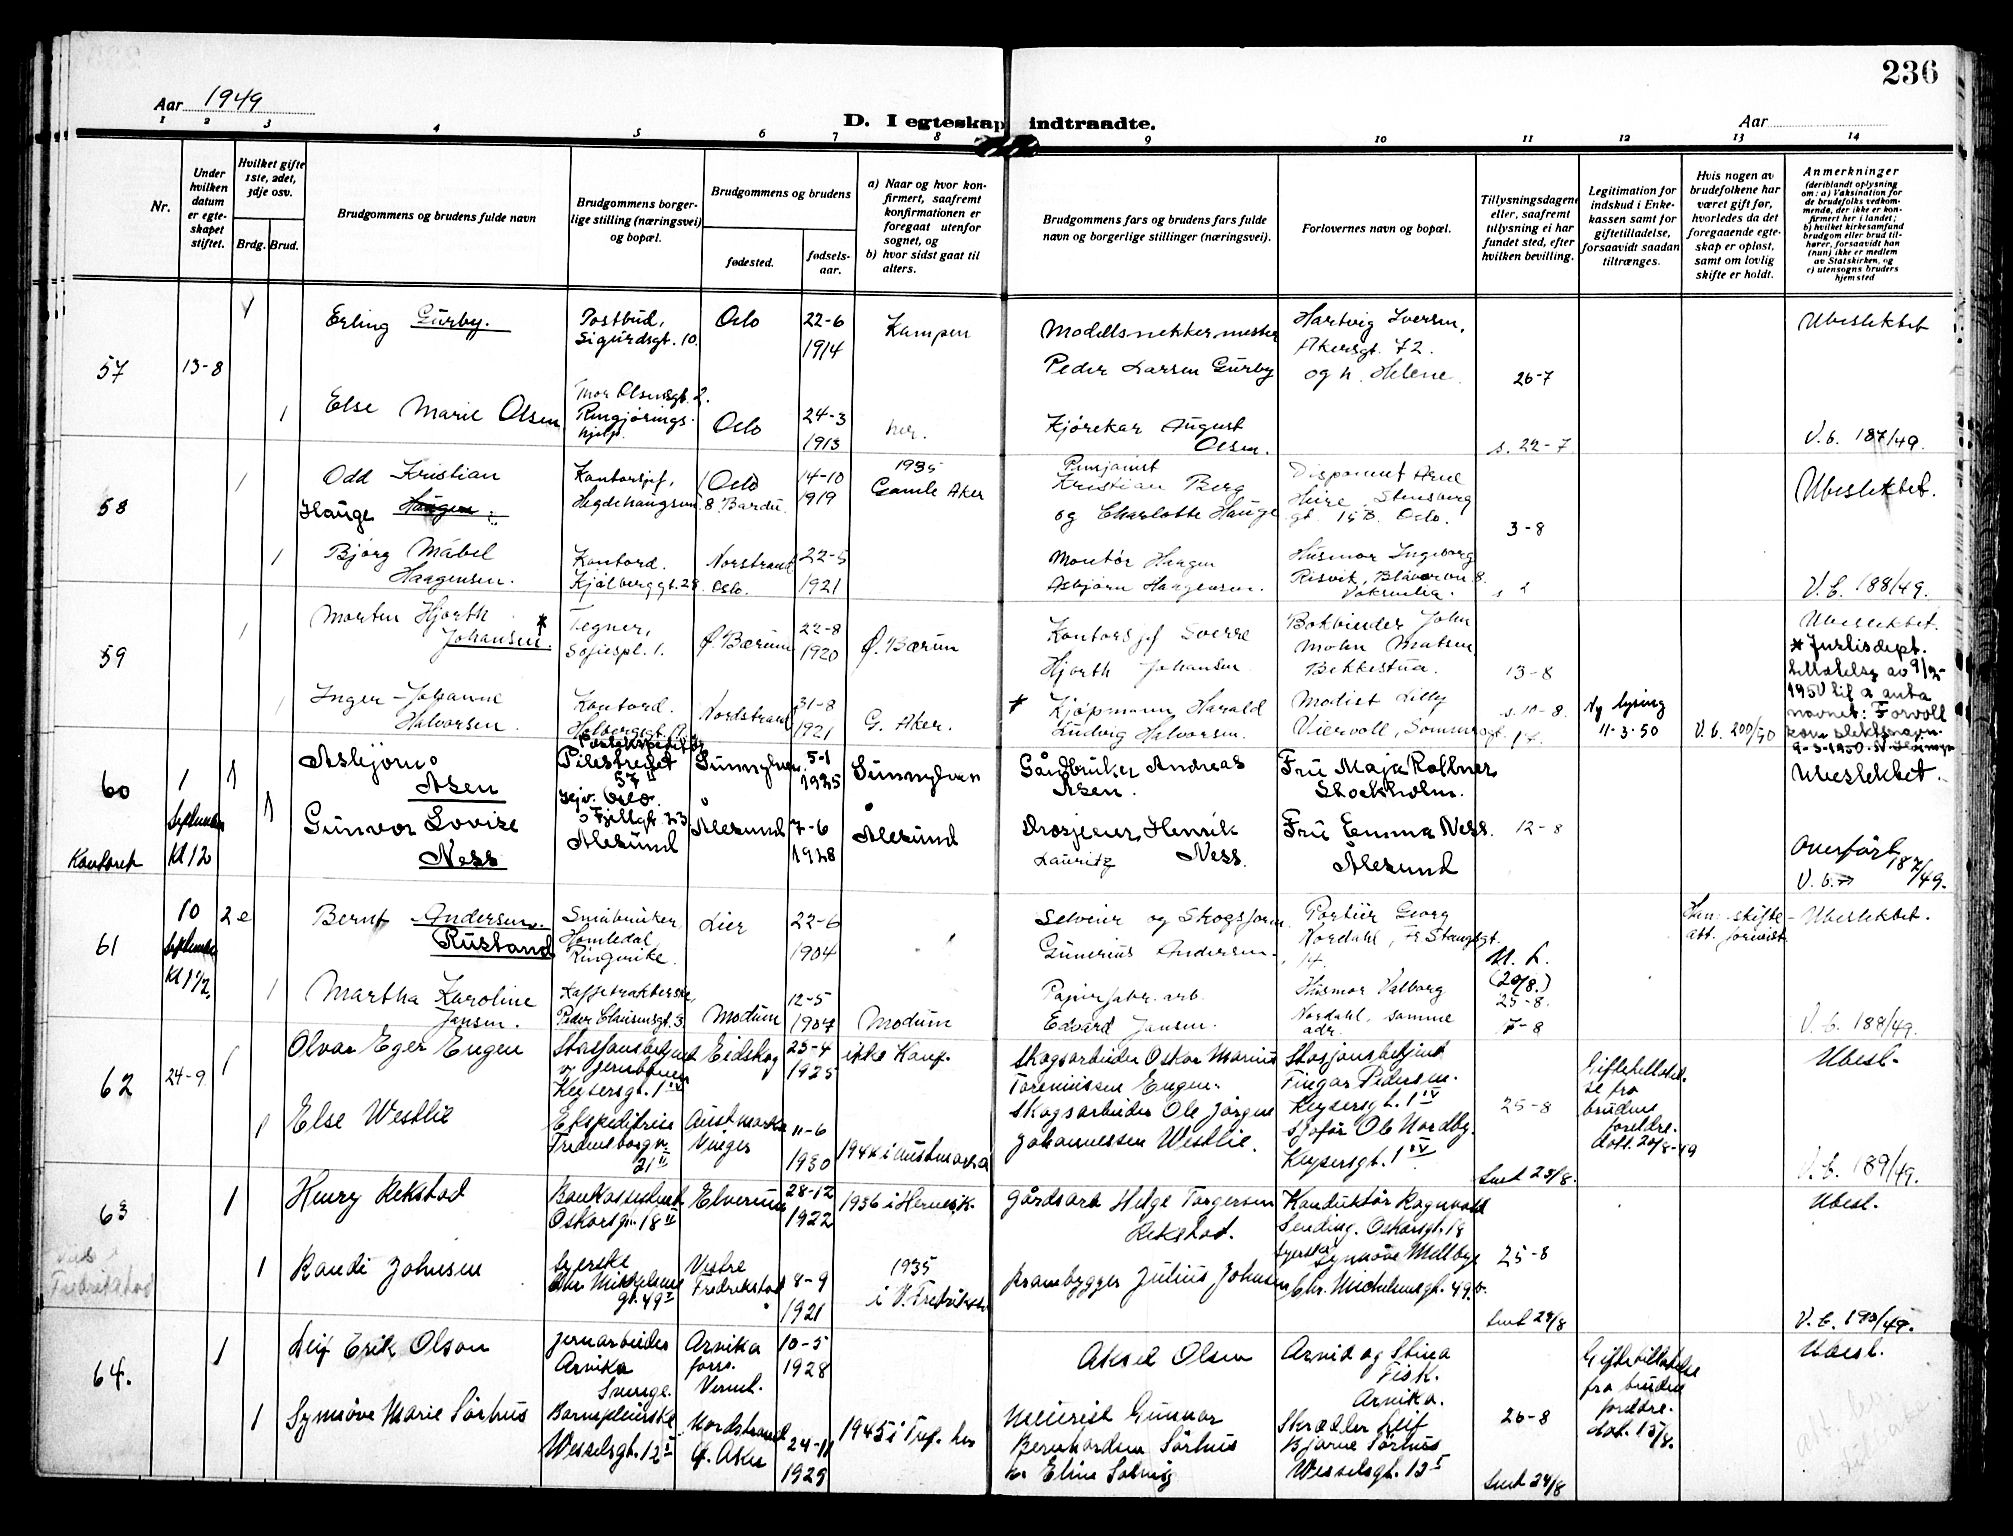 236
Aar 1949
D. I egteskap indtraadte.
Aar
1 2 3 4 5 6 7 8 9 10 11 12 13 14
Nr.
Under hvilken datum er egte-skapet stiftet.
Hvilket gifte 1ste, 2det, 3dje osv.
Brdg. Brud.
Brudgommens og brudens fulde navn
Brudgommens borger-lige stilling (næringsvei) og bopæl.
Brudgommens og brudens
fødested.
fødsels-aar.
a) Naar og hvor kon-firmert, saafremt konfirmationen er foregaat utenfor sognet, og
b) hvor sidst gaat til alters.
Brudgommens fars og brudens fars fulde navn og borgerlige stillinger (næringsvei).
Forlovernes navn og bopæl.
Tillysningsdagene eller, saafremt tillysning ei har fundet sted, efter hvilken bevilling.
Legitimation for indskud i Enke-kassen samt for giftetilladelse, forsaavidt saadan tiltrænges.
Hvis nogen av brudefolkene har været gift før, hvorledes da det foregaaende egte-skap er opløst, samt om lovlig skifte er holdt.
Anmerkninger
(deriblandt oplysning om: a) Vaksination for de brudefolks vedkom-mende, der ikke er kon-firmert her i landet; b) hvilket kirkesamfund brudgom eller brud til-hører, forsaavidt han (hun) ikke er medlem av Statskirken, og c) utensogns bruders hjemsted
57 13-8
Erling Gurby. Postbud, Sigurdsgt. 10. Oslo 22-6 1914 Kampen
Modellsnekkermester Peder Larsen Gurby
Hartvig Iversen, Akersgt. 72. og h. Helene.
26-7
Ubeslektet
1 Else Marie Olsen Thor Olsensgt. 2. Rengjørings-hjelp. Oslo 24-3 1913 her.
Kjørekar August Olsen.
s. 22-7
V.b. 187/49.
58
1 Odd Kristian Hauge Haugen Kontorsjef, Hegdehaugsvn 8 Oslo Bardu. 14-10 1919 1935 Gamle Aker
Kristian Berg og Charlotte Hauge
Disponent Heire, Stensberg gt. 19B. Oslo.
3-8
Ubeslektet.
1 Bjørg Mabel Haagensen. Kontord. Kjølberggt. 28. Norstrand Oslo. 22-5 1921
Montør Haagen Asbjørn Haagensen.
Husmor Ingeborg Risvik,
V.b. 188/49.
59
1 Morten Hjorth Johansen.* Tegner, Sofiespl. 1. Ø. Bærum 22-8 1920 Ø. Bærum
Kontorsjef Sverre Hjorth Johansen
Bokbinder John Mohn Bekkestua.
13-8
Ubeslektet.
* Justisdept. tillatelse av 9/2-1950 til å anta navnet: Forvoll som slektsnavn. 9-3-1950.
1 Inger-Johanne Halvorsen. Kontord. Holbergsgt. Nordstrand 31-8 1921 G. Aker.
* Kjøpmann Harald Ludvig Halvorsen.
Modist Lilly Viervoll, Sommersgt. 17.
s. 10-8.
Ny lysing 11-3-50
V.b. 200/50
60 Kontoret
1 September Kl 12
1 Asbjørn Åsen Postekspeditør Pilestredet 57 II Oslo. Sunnylven 5-1 1925 Sunnylven
Gårdbruker Andreas Åsen.
Fru Maja Rollner Stockholm.
Ubeslektet.
1 Gunvor Lovise Ness Fjellgt. 23 Ålesund Ålesund 7-6 1928 Ålesund
Drosjeeier Henrik Lauritz Ness.
Fru Emma Ness. Ålesund
12-8
Overført V.b. 187/49.
61
10 September Kl 1 1/2.
2e Bernt Andersen. Rustand Småbruker Homledal Ringerike. Lier 22-6 1904
Selveier og Skogsform. Gunerius Andersen.
Portier Georg Nordahl, Fr. Stangsgt. 14.
U. L. (20/8.) 25-8.
Hun: skifte-att. forevist
Ubeslektet.
1 Martha Karoline Jansen. Kaffetrakterske, Peder Clausensgt. 3. Modum 12-5 1907 Modum
Papirfabr. arb. Edvard Jansen.
Husmor Valborg Nordahl, samme adr.
7-8
V.b. 188/49.
62 24-9
1 Olvar Eger Engen Stasjonsbetjent v/ jernbanen Keysersgt. 1 IV Eidskog 25-4 1925 ikke Konf.
Skogsarbeider Oskar Marius Toreniussen Engen.
Stasjonsbetjent Fingar Pedersen. Keysersgt. 1 IV
Giftetillatel-se fra brudens foreldre. datt. 20/8-49
Ubesl.
1 Else Westlie Ekspeditrise Fredensborgvn. 21 II Austmarka Vinger 11-6 1930 1944 i Austmarka
Skogsarbeider Ole Jørgen Johannessen Westlie.
Sjofør Ole Nordby. Keysersgt. 1 IV
25-8
Sent 25/8.
V.b. 189/49.
63
1 Henry Rekstad Bankassistent Oskarsgt. 18 II Elverum 28-12 1922 1936 i Hernes K.
Gårdsarb Helge Torgersen Rekstad.
Konduktør Ragnvald Sending. Oskarsgt. 18
Ubesl.
Fredrikstad
1 Randi Johnsen Syerske Chr. Mikkelsens gt. 49 Vestre Fredrikstad 8-9 1921 1935 i V. Fredrikst.
Brambygger Julius Johnsen
Syerske Synnøve Mellbye Chr. Michelsensgt. 49.
25-8
Sent 24/8
V.b. 190/49.
64.
1 Leif Erik Olson Jernarbeider Arvika Sverige. Arvika 10-5 1928
Aksel Olsen
Arvid og Stina Fisk. Arvika.
Giftetillatelse fra brudens foreldre. dat. 15/8.
Ubesl.
1 Synnøve Marie Sörhus Barnepleierske Wesselsgt. 12 Nordstrand Ø. Aker 24-11 1929 1945 i Tref. her
Meierist Gunnar Bernhardsen Sörhus
Elin Solveig
Skredder Leif Bjarne Sörhus Wesselsgt. 13 I
26-8
Sent 24/8